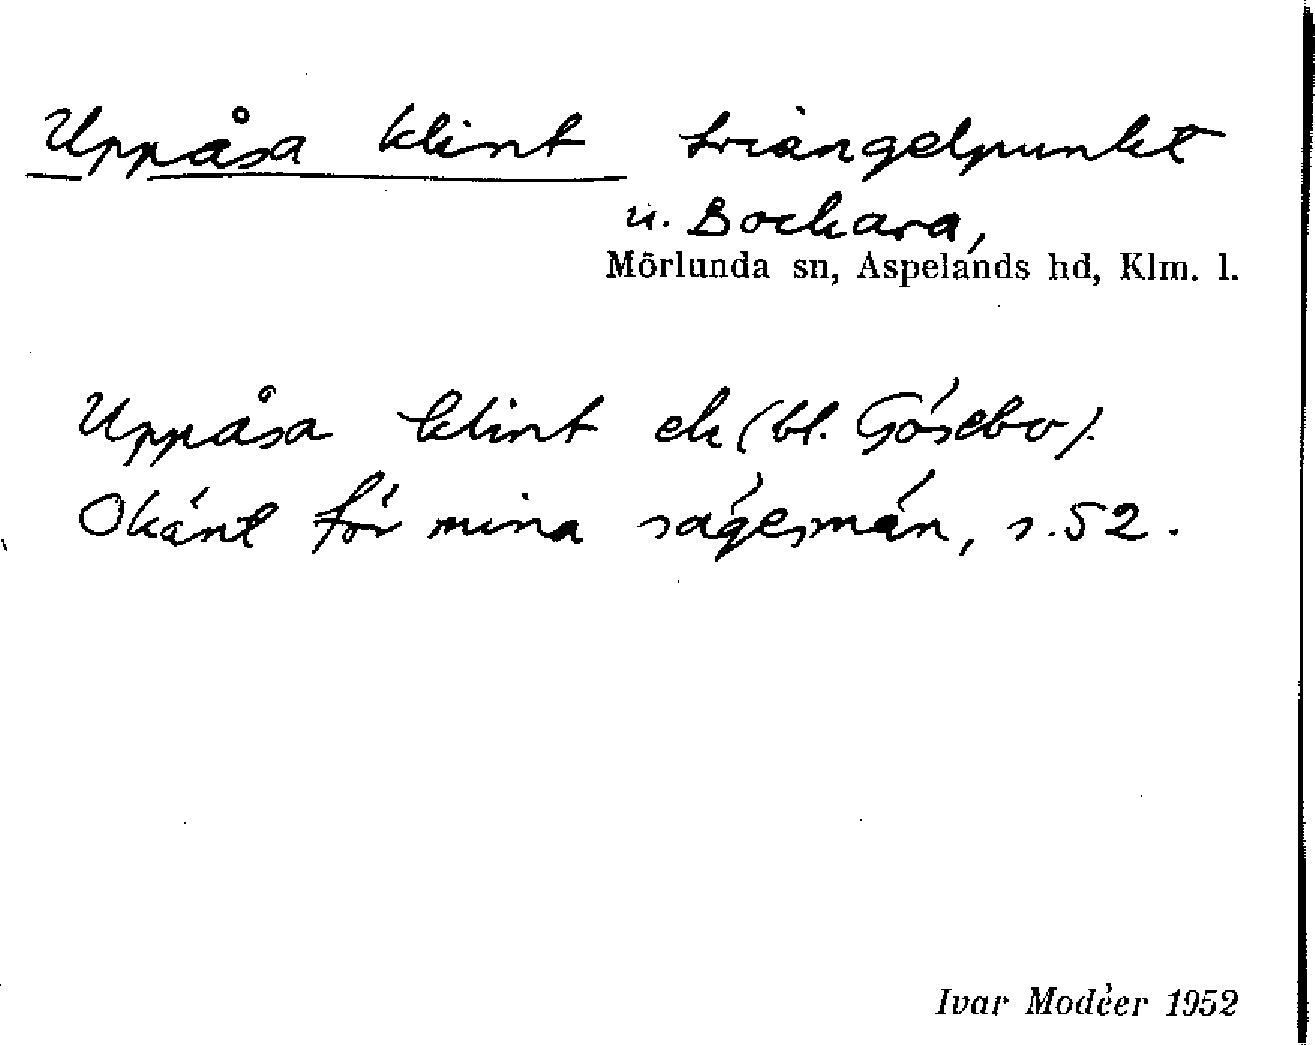 Uppåsa klint triangelpunkt
u. Bockara,
Mörlunda sn, Aspelands hd, Klm. l.
Uppåsa klint ek (bl. Gösebo).
Okänt för mina sagesmän, s. 52.
Ivar Modéer 1952